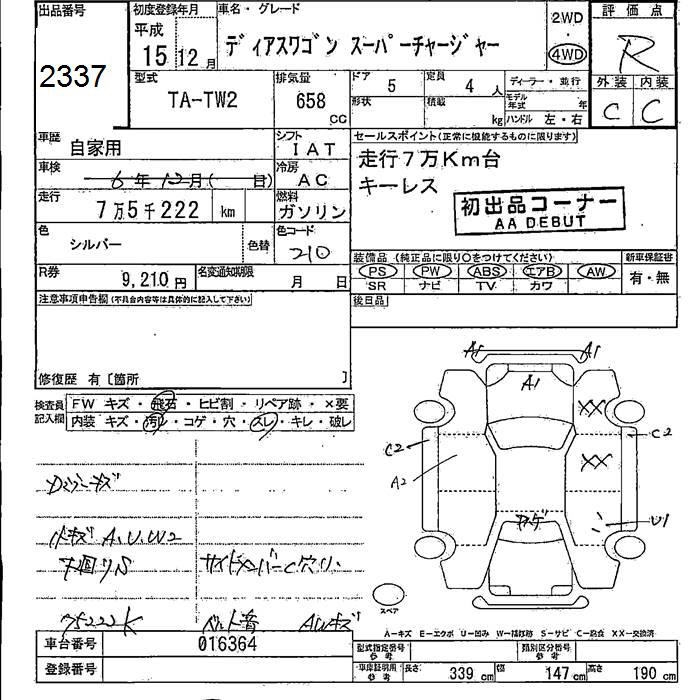 出品番号
2337
初度登録年月
平成
15 12月
車名・グレード
ディアスワゴン スーパーチャージャー
2WD
・
4WD
評価点
R
外装 内装
C C
型式
TA-TW2
排気量
658
CC
ドア
5
定員
4 人
形状
積載
kg
ディーラー・並行
モデル年式 年
ハンドル 左・右
車歴
自家用
シフト
IAT
車検
6年12月( 日)
冷房
AC
走行
7万5千222 km
燃料
ガソリン
色
シルバー
色替
色コード
210
R券
9,210円
名変通知期限
月 日
セールスポイント(正常に機能するものに限ります)
走行7万Km台
キーレス
初出品コーナー
AA DEBUT
装備品 (純正品に限り○をつけてください)
PS PW ABS エアB AW
SR ナビ TV カワ
新車保証書
有・無
後日品
注意事項申告欄(不具合内容等は具体的に記入して下さい)
修復歴 有〔箇所 〕
検査員記入欄
FW キズ・飛石・ヒビ割・リペア跡・×要
内装 キズ・汚レ・コゲ・穴・スレ・キレ・破レ
小キズ A.U.W2
下回りS
サイドメンバーC穴り.
75222K
A1 A1
A1
XX
C2
C2
A2
XX
U1
アゲ
スペア
A-キズ E-エクボ U-凹み W-補修跡 S-サビ C-腐食 XX-交換済
車台番号
016364
登録番号
型式指定番号
参考
類別区分番号
参考
車庫証明用
参考
長さ 339 cm 幅 147 cm 高さ 190 cm